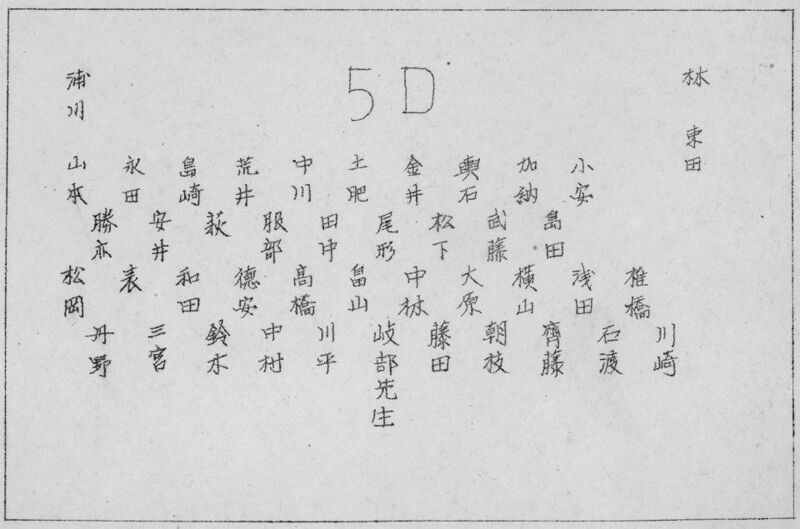 5D
浦川 林 東田
山本 永田 島崎 荒井 中川 土肥 金井 輿石 加納 小安
勝亦 安井 萩 服部 田中 尾形 松下 武藤 島田
松岡 表 和田 德安 高橋 畠山 中林 大原 横山 浅田 椎橋
丹野 三宮 鈴木 中村 川平 岐部先生 藤田 朝枝 齊藤 石渡 川崎